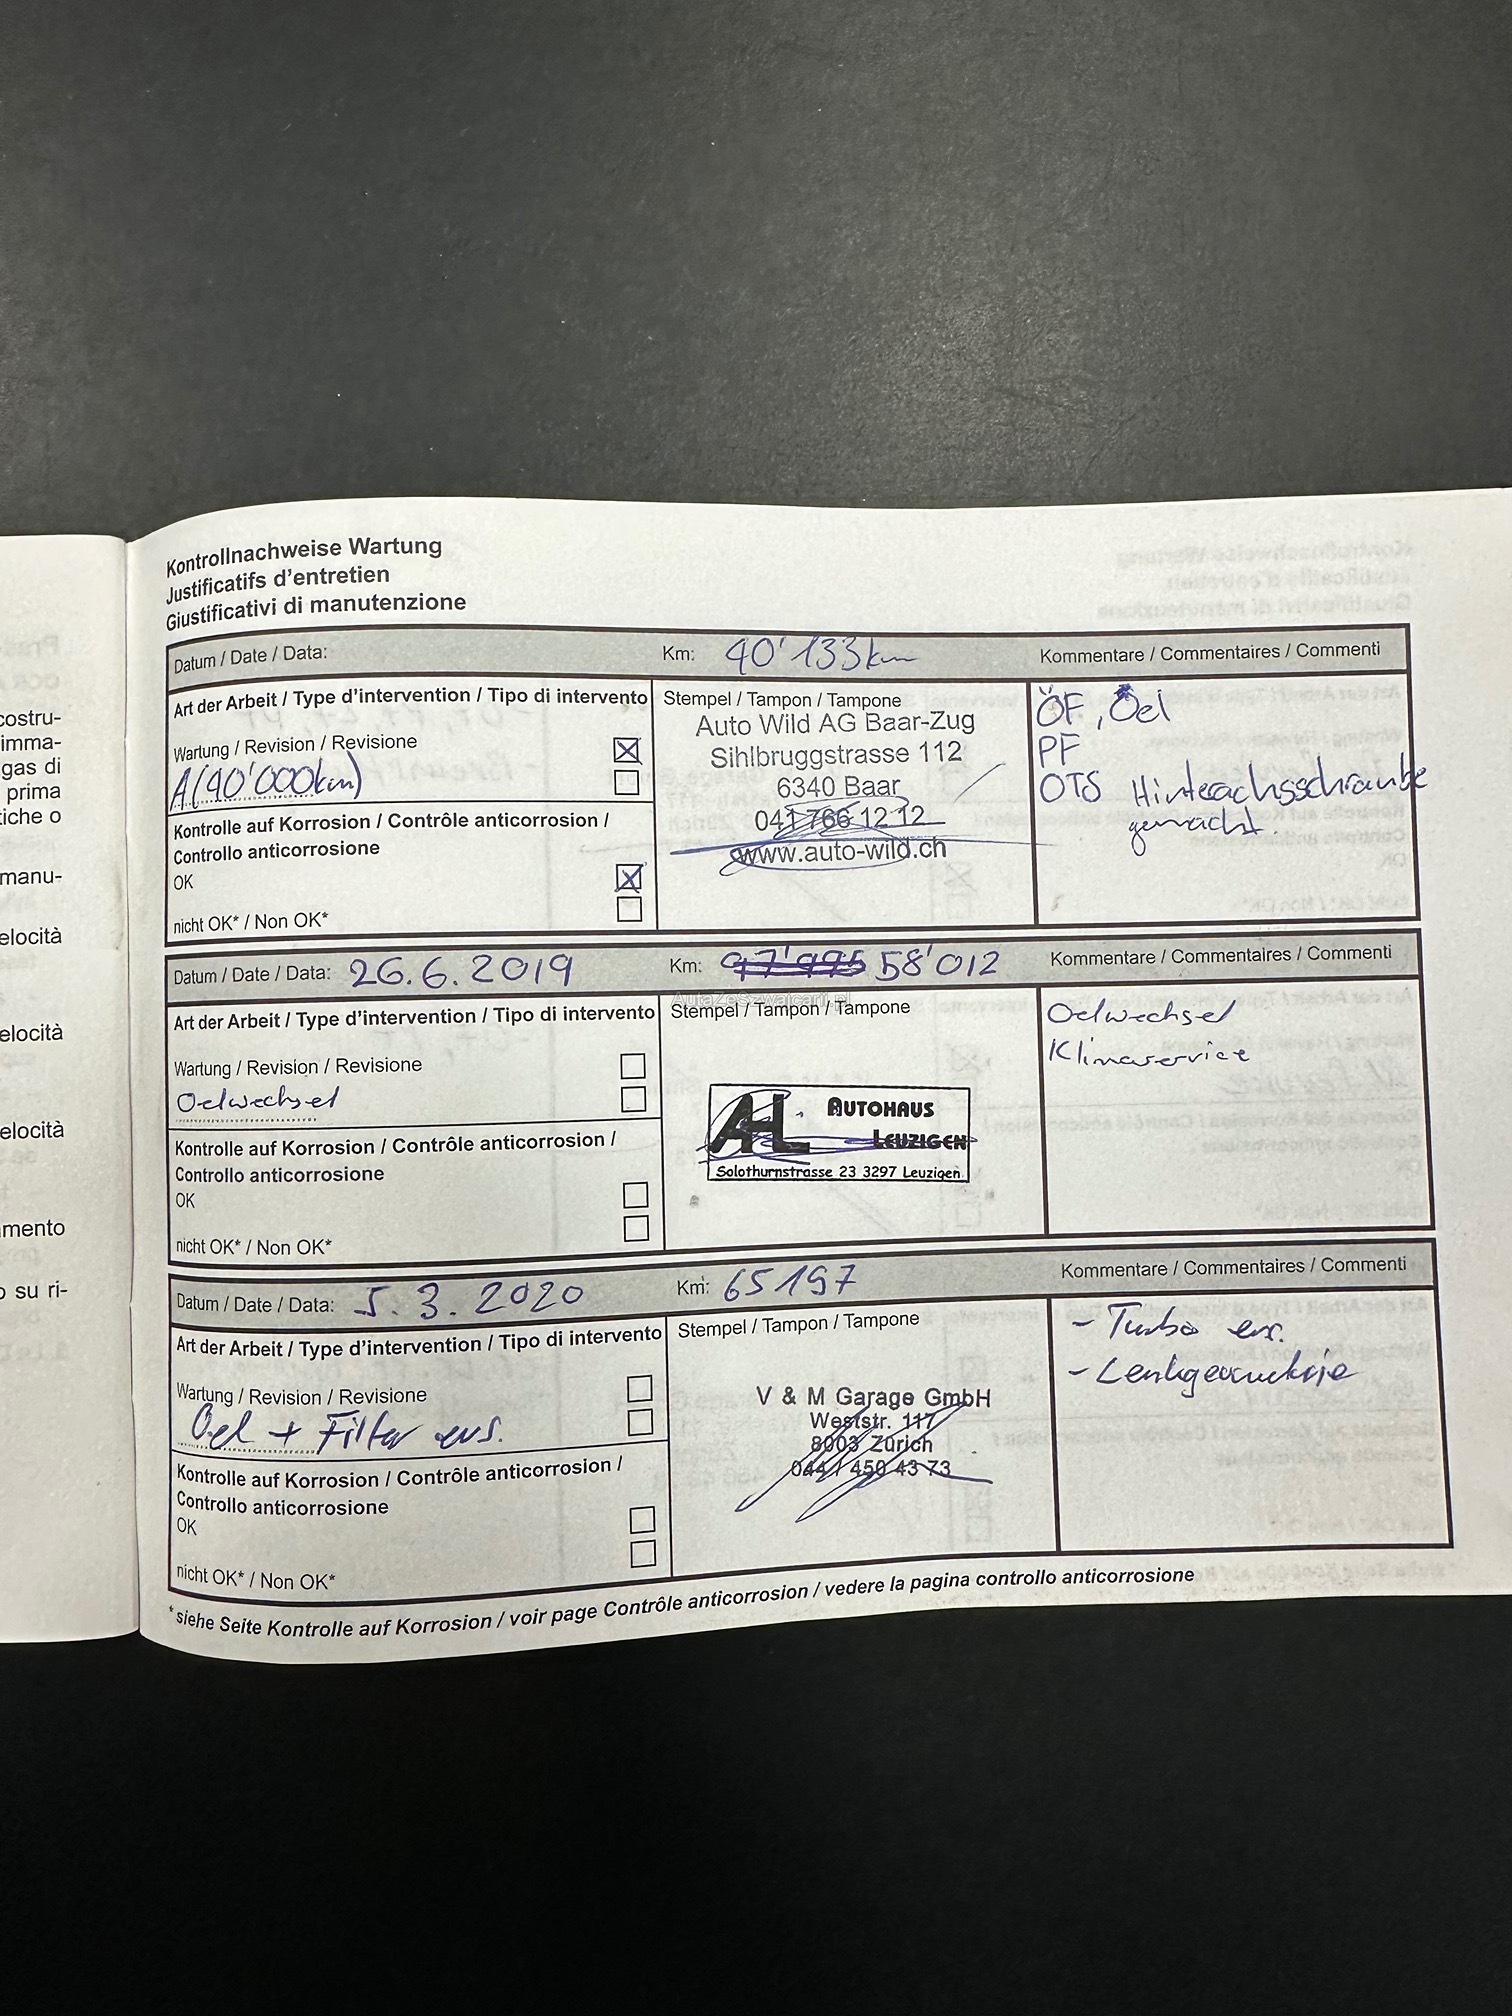 Kontrollnachweise Wartung
Justificatifs d'entretien
Giustificativi di manutenzione
Datum / Date / Data:
Km: 40'133km
Kommentare / Commentaires / Commenti
Art der Arbeit / Type d'intervention / Tipo di intervento
Wartung / Revision / Revisione
A(40'000km)
Kontrolle auf Korrosion / Contrôle anticorrosion /
Controllo anticorrosione
OK
nicht OK* / Non OK*
Stempel / Tampon / Tampone
Auto Wild AG Baar-Zug
Sihlbruggstrasse 112
6340 Baar
041 766 12 12
www.auto-wild.ch
ÖF, Oel
PF
OTS Hinterachsschraube
gemacht.
Datum / Date / Data: 26.6.2019
Km: 58'012
Kommentare / Commentaires / Commenti
Art der Arbeit / Type d'intervention / Tipo di intervento
Wartung / Revision / Revisione
Oelwechsel
Kontrolle auf Korrosion / Contrôle anticorrosion /
Controllo anticorrosione
OK
nicht OK* / Non OK*
AutaZeSzwajcarii.pl
Stempel / Tampon / Tampone
AHL AUTOHAUS
LEUZIGEN
Solothurnstrasse 23 3297 Leuzigen
Oelwechsel
Klimaservice
Datum / Date / Data: 5.3.2020
Km: 65197
Kommentare / Commentaires / Commenti
Art der Arbeit / Type d'intervention / Tipo di intervento
Wartung / Revision / Revisione
Oel + Filter ers.
Kontrolle auf Korrosion / Contrôle anticorrosion /
Controllo anticorrosione
OK
nicht OK* / Non OK*
Stempel / Tampon / Tampone
V & M Garage GmbH
Weststr. 117
8003 Zürich
044 / 450 43 73
- Turbo ers.
*siehe Seite Kontrolle auf Korrosion / voir page Contrôle anticorrosion / vedere la pagina controllo anticorrosione
costru-
imma-
gas di
prima
tiche o
manu-
elocità
elocità
elocità
mento
o su ri-